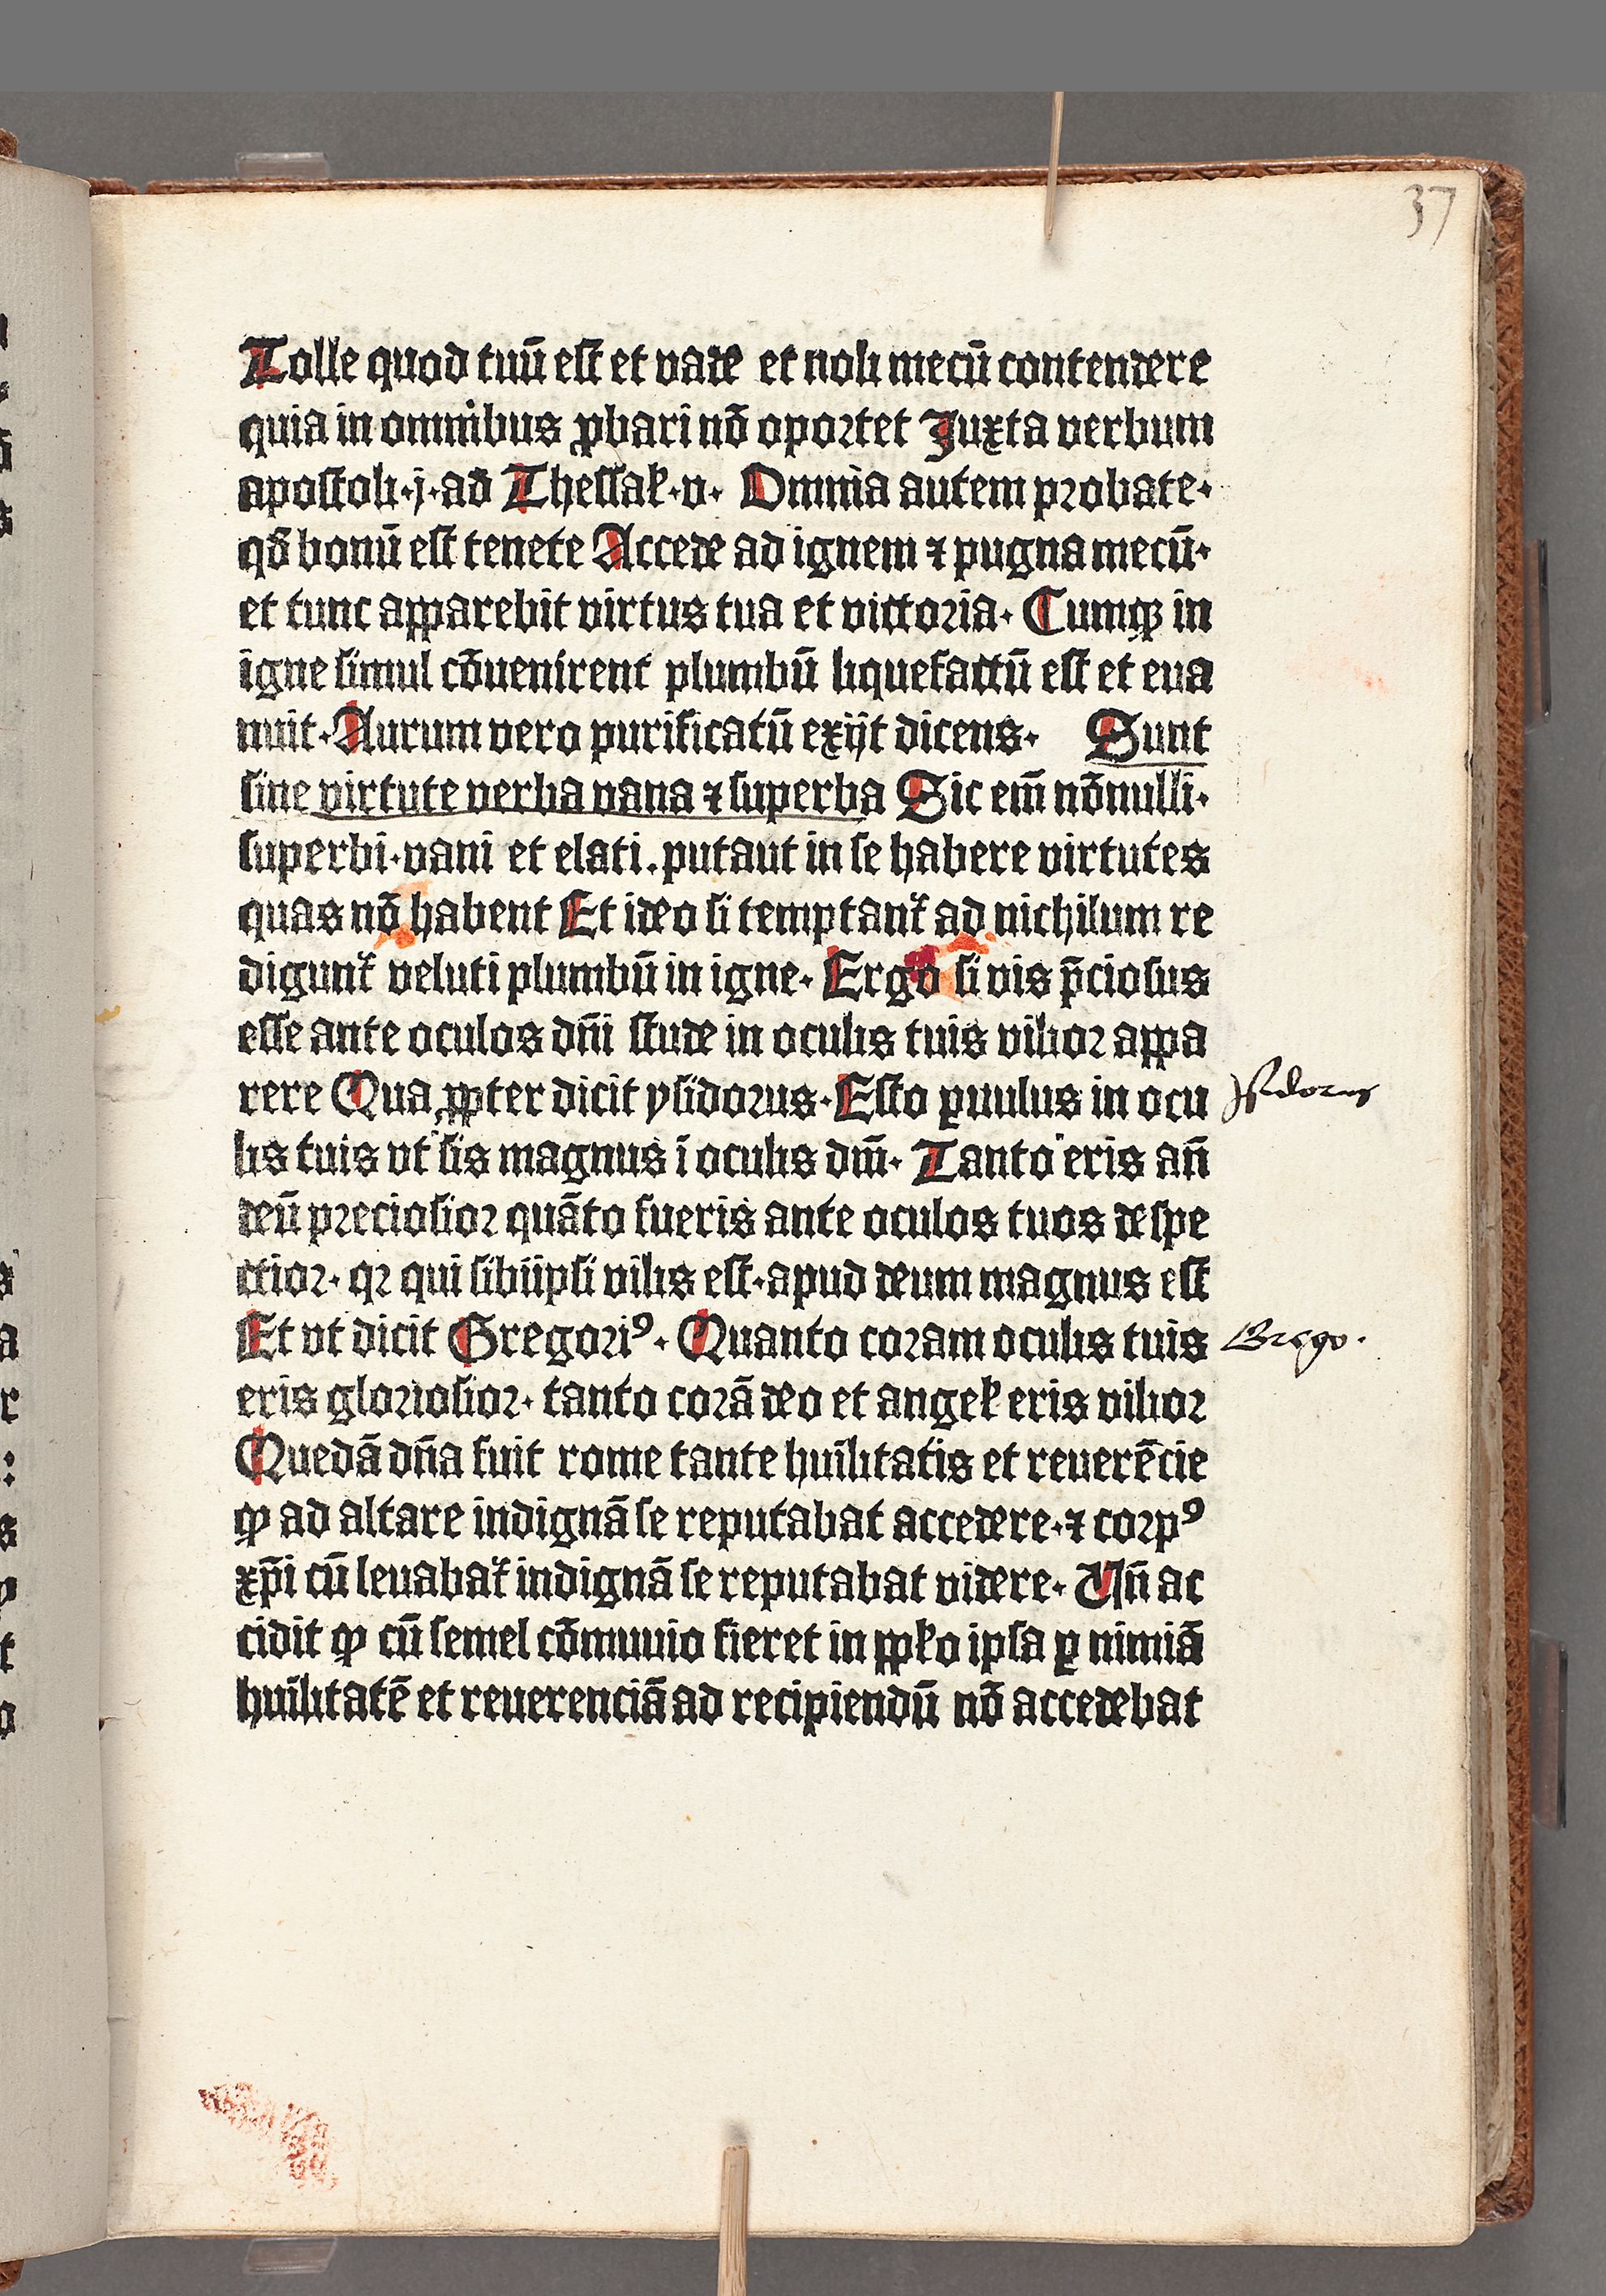 37
Tolle quod tuū est et vade et noli mecū contendere
quia in omnibus ꝓbari nō oportet Juxta verbum
apostoli·j·ad Thessal̄·v· Omnia autem probate·
qď bonū est tenete Accede ad ignem ⁊ pugna mecū·
et tunc apparebit virtus tua et victoria· Cumqꝫ in
igne simul cōuenirent plumbū liquefactū est et eua
nuit·Aurum vero purificatū exijt dicens· Sunt
sine virtute verba vana ⁊ superba Sic em̄ nōnulli·
superbi·vani et elati.putaut in se habere virtutes
quas nō habent Et ideo si temptant᷑ ad nichilum re
digunt᷑ veluti plumbū in igne· Ergo si vis p̄ciosus
esse ante oculos dn̄i stude in oculis tuis vilior appa
rere Qua ꝓpter dicit ysidorus·Esto ꝑuulus in ocu
Jsidorus
lis tuis vt sis magnus ī oculis dn̄i· Tanto eris an̄
deū preciosior quāto fueris ante oculos tuos despe
ctior· qr qui sibiipsi vilis est·apud deum magnus est
Et vt dicit Gregoriꝰ· Quanto coram oculis tuis
Grego·
eris gloriosior· tanto corā deo et angel̄ eris vilior
Quedā dn̄a fuit rome tante huīlitatis et reuerēcie
ꝙ ad altare indignā se reputabat accedere·⁊ corpꝰ
xp̄i cū leuabat᷑ indignā se reputabat videre· Vn̄ ac
cidit ꝙ cū semel cōmuuio fieret in ppl̄o ipsa ꝑ nimiā
huīlitatē et reuerenciā ad recipiendū nō accedebat